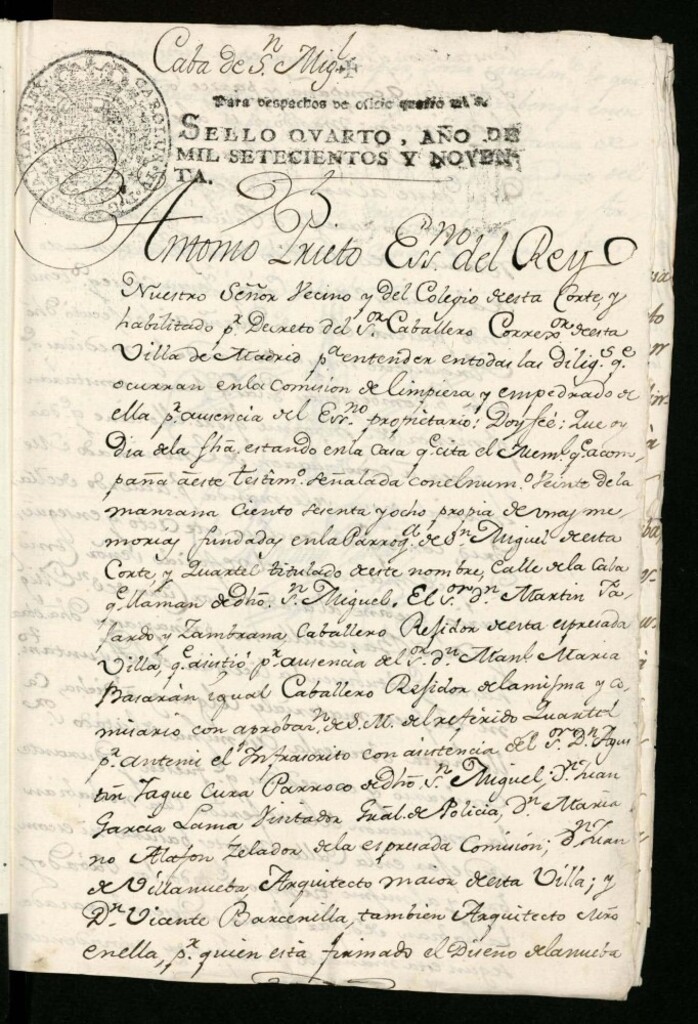 Caba de S.n Mig.l
Para despachos de oficio quatro mrs.
SELLO QVARTO, AÑO DE
MIL SETECIENTOS Y NOVEN-
TA.
CAROLUS IV D G HISPANIAR REX
Antonio Prieto Ess.no del Rey
Nuestro Señor Vecino y del Colegio desta Corte, y
habilitado p.r Decreto del S.or Caballero Correx.or desta
Villa de Madrid p.a entender entodas las dilig.s q.e
ocurran enla Comision de limpieza y empedrado de
ella p.r ausencia del Ess.no proprietario: Doy feé: Que oy
Dia dela fha, estando enla Casa q.e cita el Mem.l q.e acom-
paña aeste testim.o señalada conelnum.o veinte dela
manzana Ciento sesenta y ocho propia de unas me-
morias fundadas enla Parroq.l de S.n Miguel desta
Corte, y Quartel titulado deste nombre, Calle dela Caba
q.e llaman de dho. S.n Miguel. El S.or d.n Martin Fa-
jardo y Zambrana Caballero Rejidor desta espresada
Villa, q.e asistió p.r ausencia del S.or d.n Man.l Maria
Basarán igual Caballero Rejidor dela misma y Co-
misario con aprobaz.n de S. M. del referido Quartel
p.r antemi el Infrascrito con asistencia del S.or D.n Agus
tin Jague Cura Parroco de dho. S.n Miguel, D.n Juan
Garcia Lama Visitador Gral. de Policia, D.n Maria
no Alafon Zelador dela espresada Comisión; D.n Juan
de Villanueba, Arquitecto maior desta Villa; y
D.n Vicente Barcenilla, tambien Arquitecto
enella, p.r quien está firmado el Diseño dela nueba